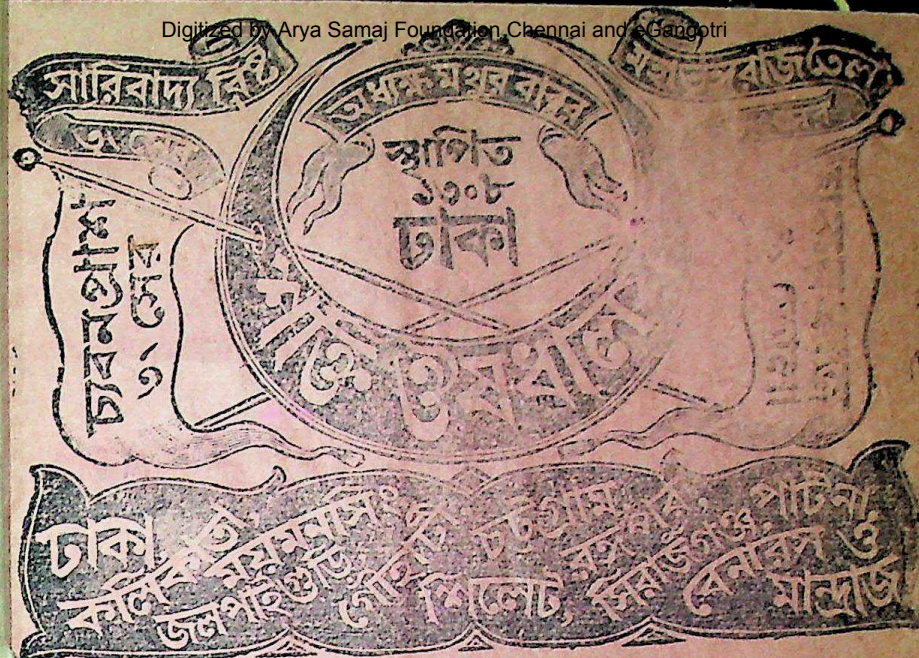 Digitized by Arya Samaj Foundation Chennai and eGangotri
সারিবাদ্য রিষ্ট
অধ্যক্ষ মথুর বাবুর
স্থাপিত
১৩০৮
ঢাকা
চ্যবনপ্রাশ
৩৲ সের
শক্তি ঔষধালয়
ঢাকা
কলিকাতা,
ময়মনসিং
জলপাইগুড়ি,
গৌহাটী
চট্টগ্রাম
শিলেট,
রঙ্গপুর,
সিরাজগঞ্জ,
পাটনা,
বেনারস ও
মান্দ্রাজ